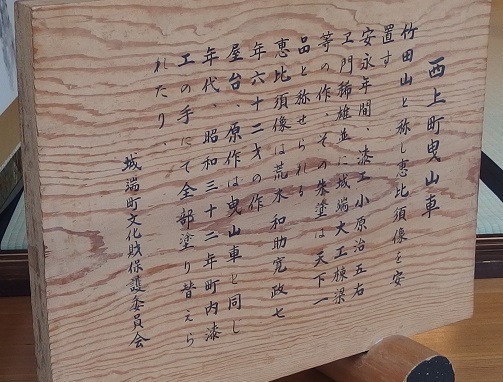 西上町曳山車
竹田山と称し恵比須像を安
置す
安永年間、漆工小原治五右
ヱ門稀雄並に城端大工棟梁
等の作、その朱塗は天下一
品と称せられる
恵比須像は荒木和助寛政七
年六十二才の作
屋台、原作は曳山車と同し
年代、昭和三十二年町内漆
工の手にて全部塗り替えら
れたり、
城端町文化財保護委員会